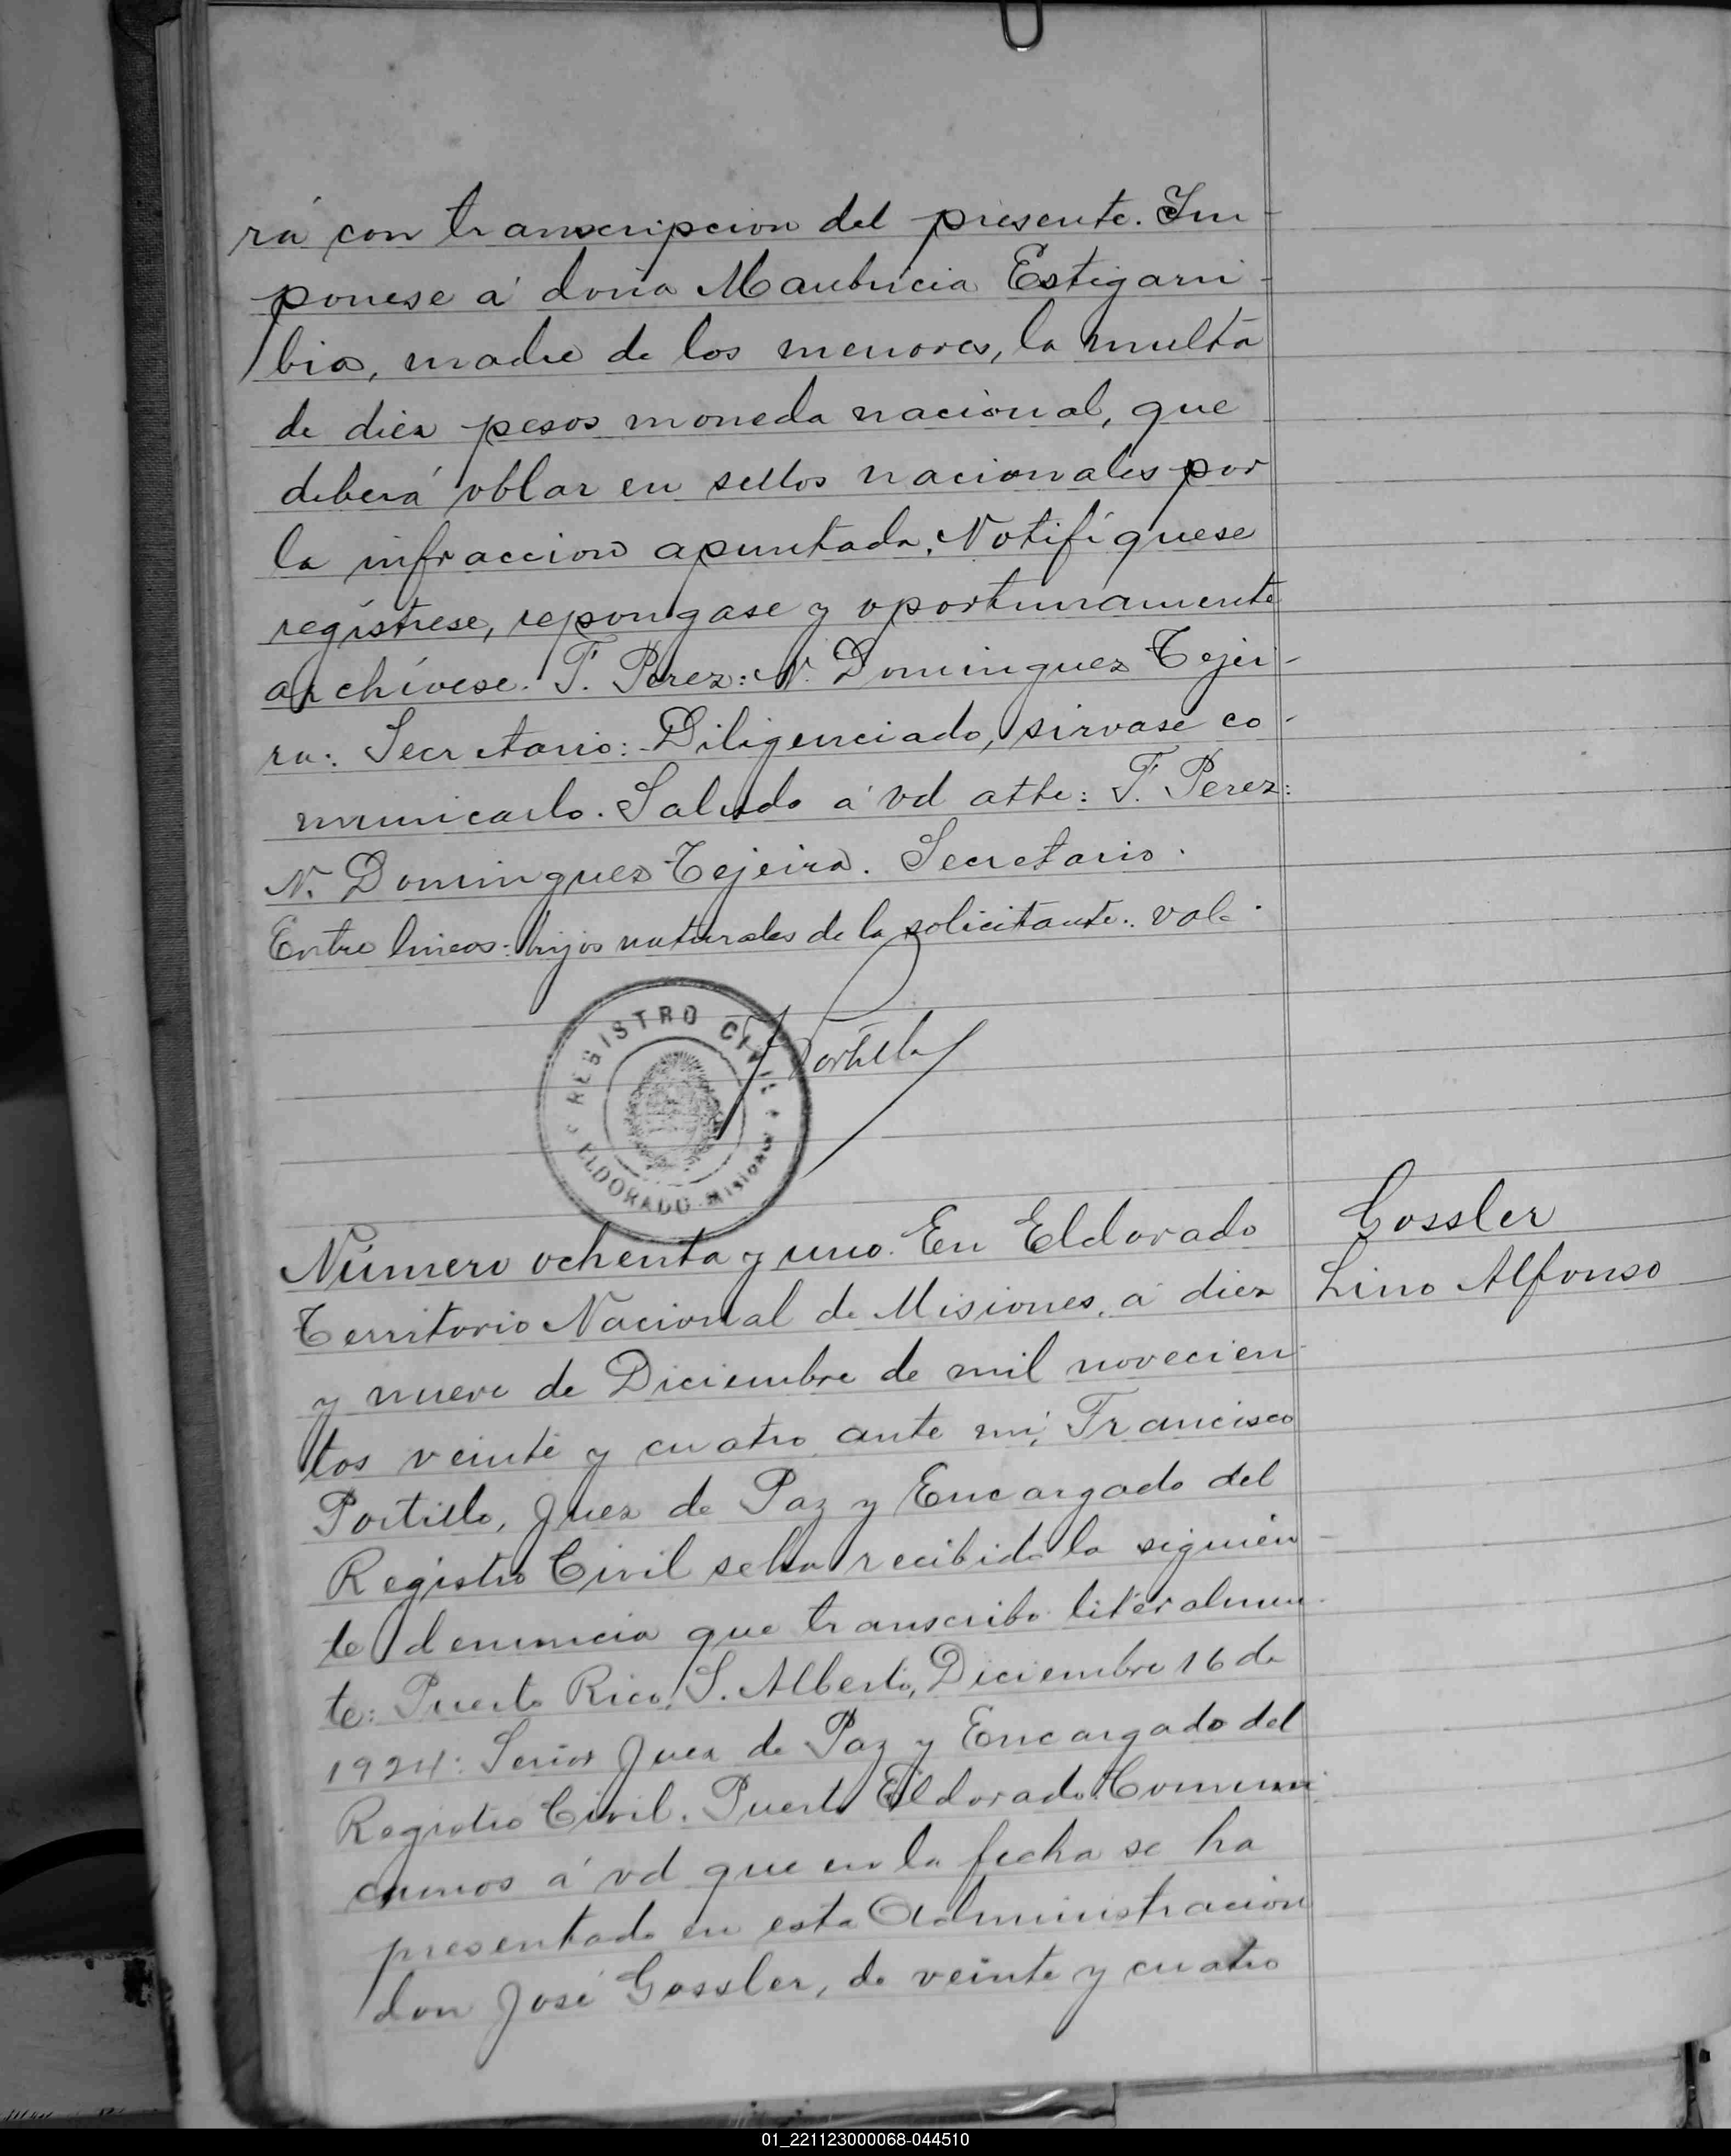 rá con transcripcion del presente. Im-
ponese á doña Maubricia Estigarri-
bia, madre de los menores, la multa
de diez pesos moneda nacional, que
deberá oblar en sellos nacionales por
la infraccion apuntada. Notifíquese
regístrese, repongase y oportunamente
archívese. F. Perez: N. Dominguez Tejei-
ra: Secretario: Diligenciado, sirvase co-
municarlo. Saludo á vd atte: F. Perez:
N. Dominguez Tejeira. Secretario.
Entre lineas: hijos naturales de la solicitante: vale.
REGISTRO CIVIL
ELDORADO - Misiones
F Portillo
Número ochenta y uno. En Eldorado
Territorio Nacional de Misiones, á diez
y nueve de Diciembre de mil novecien
tos veinte y cuatro ante mi, Francisco
Portillo, Juez de Paz y Encargado del
Registro Civil se ha recibido la siguien-
te denuncia que transcribo literalmen-
te: Puerto Rico, S. Alberto, Diciembre 16 de
1924: Señor Juez de Paz y Encargado del
Registro Civil. Puerto Eldorado. Comuni-
camos á vd que en la fecha se ha
presentado en esta Administración
don José Gossler, de veinte y cuatro
Gossler
Lino Alfonso
01_221123000068-044510